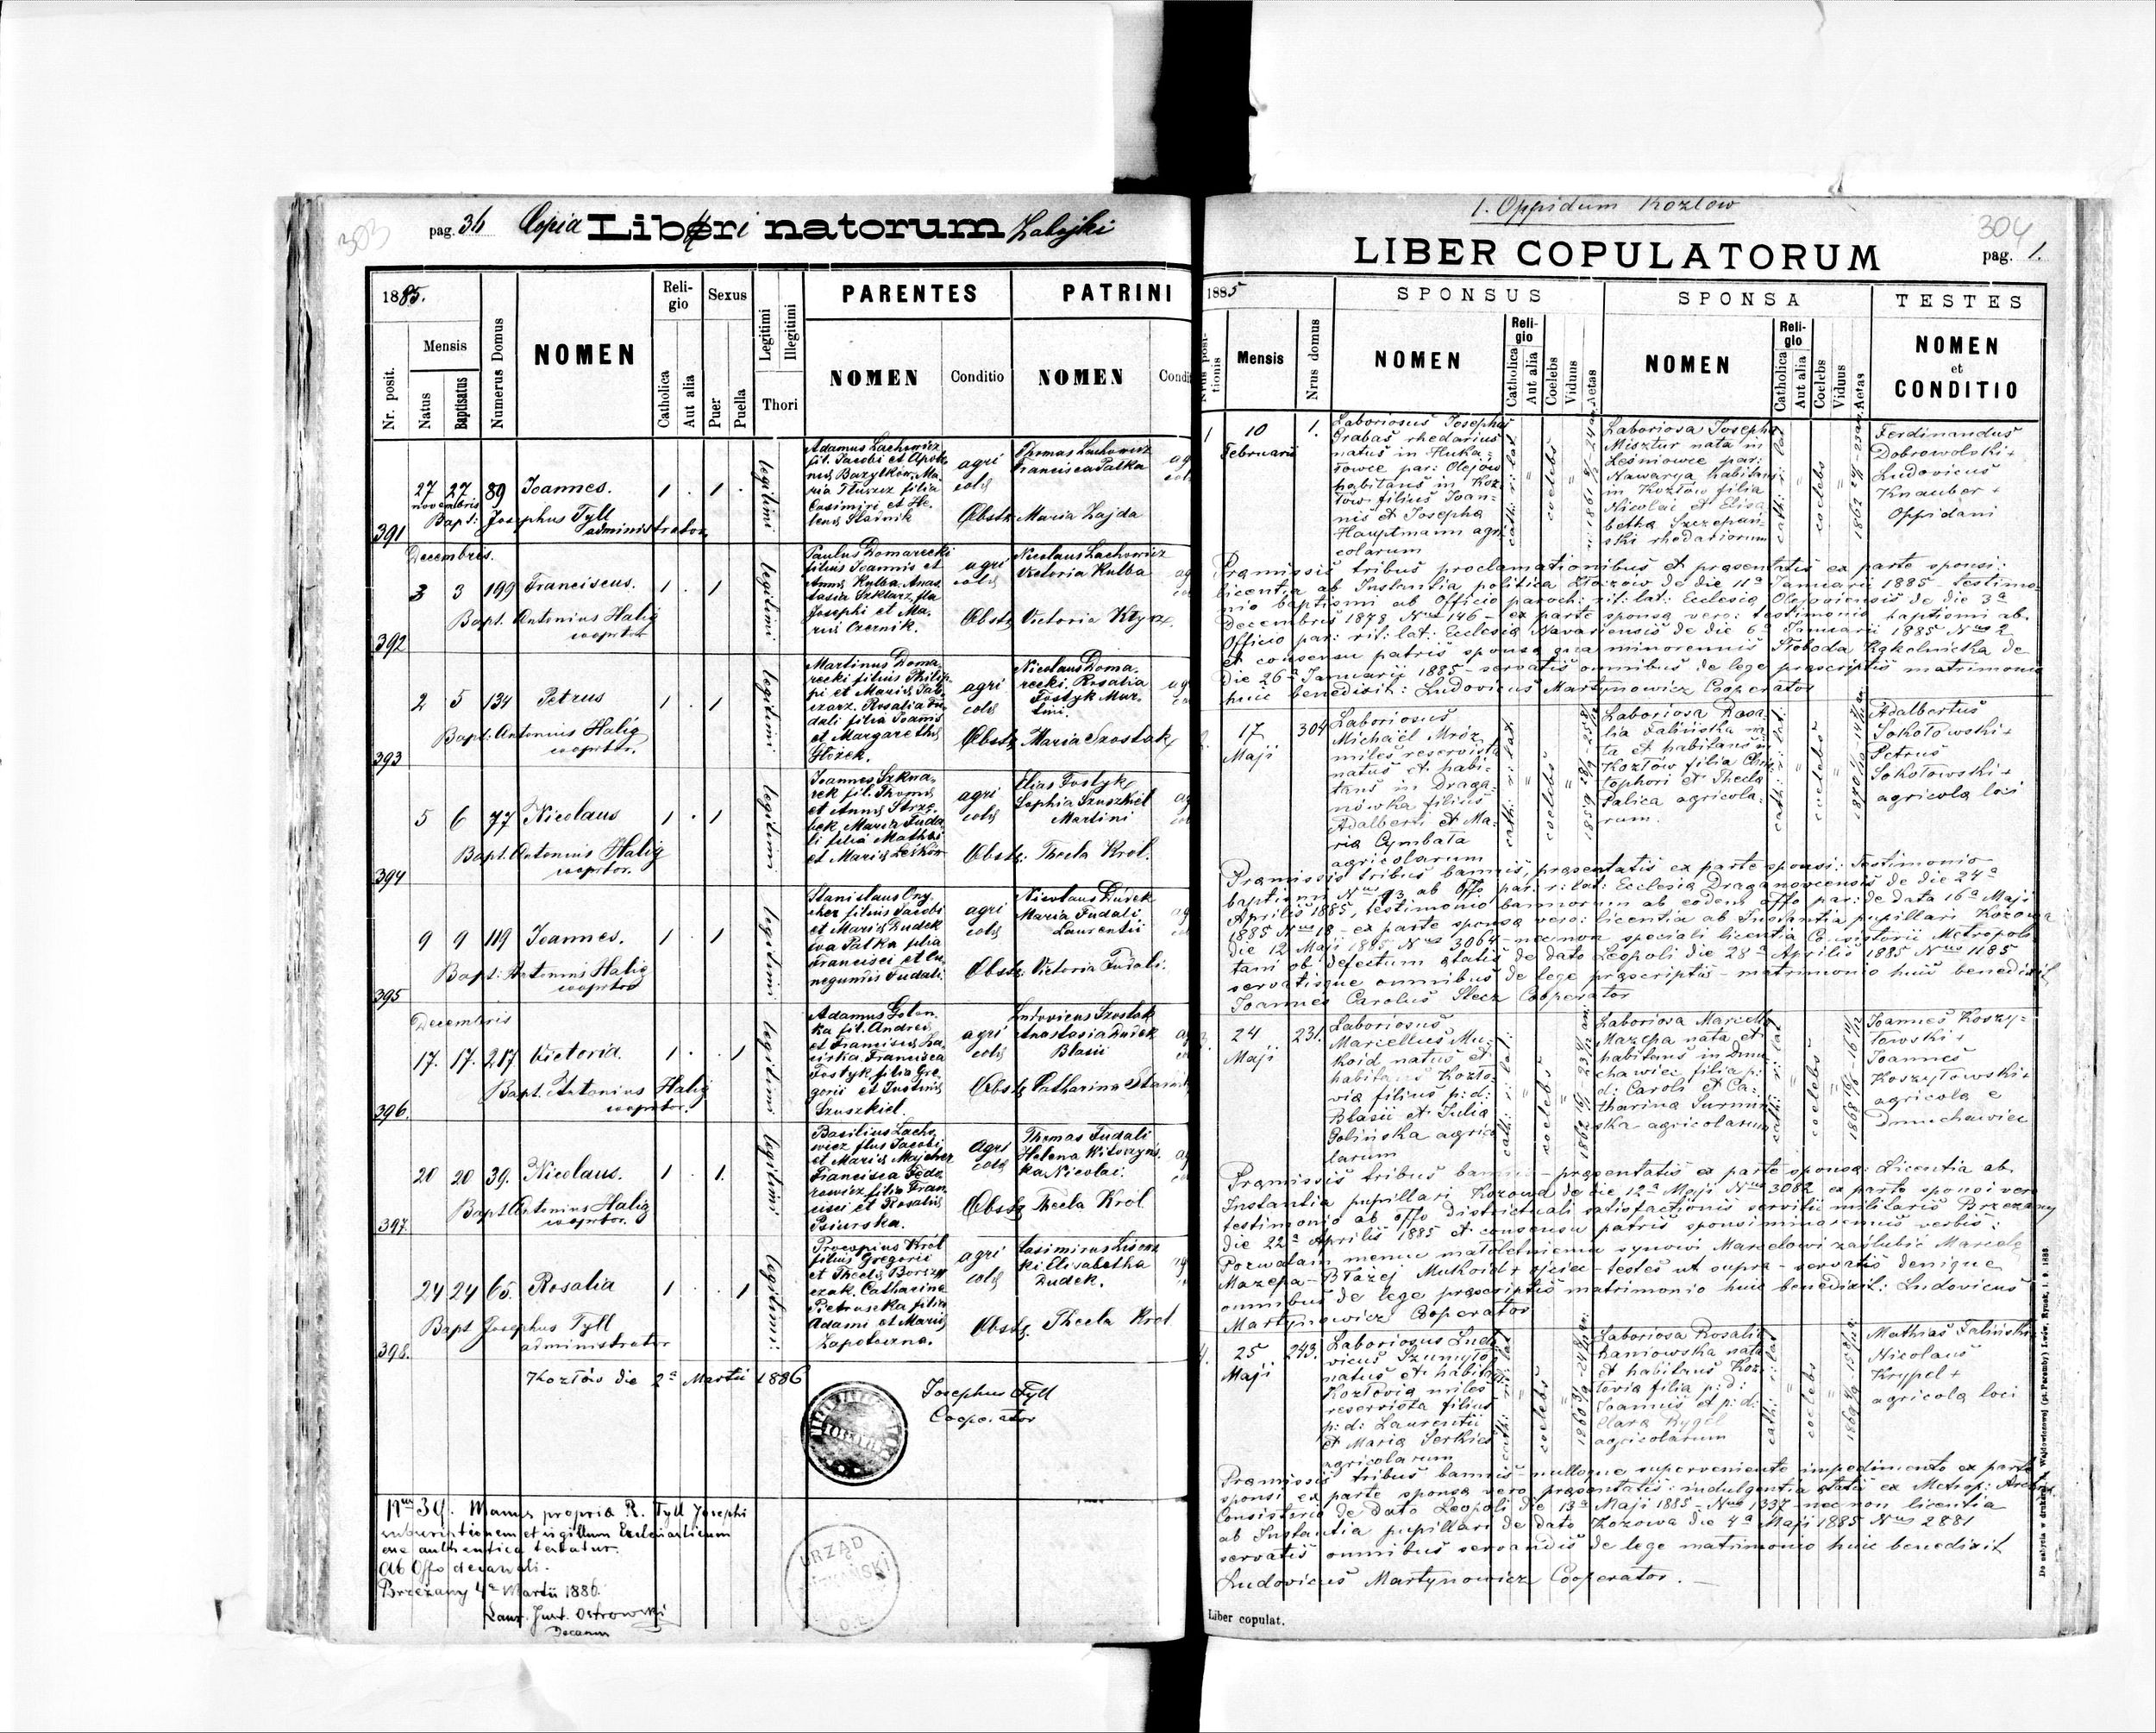 303
pag. 36 Copia Liberi natorum Zabojki
1885.
Nr. posit.
Mensis
Natus
Baptisatus
Numerus Domus
NOMEN
Religio
Catholica
Aut alia
Sexus
Puer
Puella
Legitimi
Illegitimi
Thori
PARENTES
NOMEN
Conditio
PATRINI
NOMEN
Condi
391
27 27 89 Joannes. 1 . 1 .
novembris
Bapt: Josephus Tyll
administrator
legitimi
Adamus Lachowicz
fil. Jacobi et Apolo
niæ Bazylków. Ma
ria Tłuszcz filia
Casimiri et He
lenæ Słabnik
agri
colæ
Thomas Lachowicz
Francisca Patka
Obstx Maria Zajda
392
Decembris.
3 3 199 Franciscus. 1 . 1
Bapt. Antonius Halig
cooprtor
legitimi
Paulus Domarecki
filius Joannis et
Annæ Kulba. Anas
tasia Szklarz fla
Josephi et Ma
riæ Czernik.
agri
colæ
Nicolaus Lachowicz
Victoria Kulba
Obstx Victoria Kłysz.
393
2 5 134 Petrus 1 . 1
Bapt: Antonius Halig
cooprtor.
legitimi
Martinus Doma
recki filius Philip
pi et Mariæ
Rosalia Fu
dali filia Joannis
et Margarethæ
Głożek.
agri
colæ
Nicolaus Doma
recki. Rosalia
Fostyk Mar
tini.
Obstx Maria Szostak
394
5 6 77 Nicolaus 1 . 1
Bapt. Antonius Halig
cooprtor.
legitimi
Joannes Szkna
rek fil. Thomæ
et Annæ Strzę
bek Maria Fuda
li filia Mathæi
et Mariæ Leśków
agri
colæ
Elias Fostyk
Sophia Szuszkiel
Martini
Obstx: Thecla Krol.
395
9 9 119 Joannes. 1 . 1
Bapt: Antonius Halig
cooprtor
legitimi
Stanislaus Ony
cher filius Jacobi
et Mariæ Dudek
Eva Patka filia
Francisci et Cu
negundis Fudali.
agri
colæ
Nicolaus Dudek
Maria Fudali
Laurentii
Obstx Victoria Fudali.
396.
Decembris
17. 17. 217 Victoria. 1 . . 1
Bapt. Antonius Halig
cooprtor.
legitimi
Adamus Goton
ka fil. Andreæ
et Franciscæ
Francisca
Fostyk filia Gre
gorii et Justinæ
Szuszkiel.
agri
colæ
Ludovicus Szostak
Anastasia Dudek
Blasii
Obstx Catharina
397.
20 20 39. Nicolaus. 1 . 1.
Bapt. Antonius Halig
cooprtor.
legitimi
Basilius Lacho
wicz flus Jacobi
et Mariæ Majcher
Francisca Fedo
rowicz filia Fran
cisci et Rosaliæ
Psiurska.
agri
colæ
Thomas Fudali
Helena Witoszyńs
ka Nicolai.
Obstx Thecla Król
398.
24 24 65. Rosalia 1 . . 1
Bapt Josephus Tyll
administrator
legitimi:
Procopius Król
filius Gregorii
et Theclæ Borszcz
czak. Catharina
Pietruszka filia
Adami et Mariæ
Zapotoczna.
agri
colæ
Casimirus Lisons
ki Elisabetha
Dudek.
Obstx. Thecla Krol
Kozłów die 2a Martii 1886
Josephus Tyll
Cooperator
Nus 34. Manus propriæ R. Tyll Josephi
subscriptionem et sigillum Ecclesiasticum
esse authentica testatur.
Ab Offo decanali.
Brzeżany 4a Martii 1886.
Laur. Just. Ostrowski
Decanus
URZĄD
1. Oppidum Kozłow
304
LIBER COPULATORUM
pag. 1.
1885
Nrus positionis
Mensis
Nrus domus
SPONSUS
NOMEN
Religio
Catholica
Aut alia
Coelebs
Viduus
Aetas
SPONSA
NOMEN
Religio
Catholica
Aut alia
Coelebs
Viduus
Aetas
TESTES
NOMEN
et
CONDITIO
1
10
Februarii
1.
Laboriosus Josephus
Grabas rhedarius
natus in Huka=
łowce par: Olejów
habitans in Koz
łów filius Joan=
nis et Josepha
Hauptmann agri
colarum
cath: r: lat
coelebs
Laboriosa Josepha
Misztur nata in
Leśniowce par:
Nawarya habitans
in Kozłów filia
Nicolai et Elisa
betha Szczepań
ski rhedariorum
cath: r: lat
coelebs
Ferdinandus
Dobrowolski +
Ludovicus
Knauber +
Oppidani
Præmissis tribus proclamationibus et præsentatis ex parte sponsi:
licentia ab Instantia politica Złoczów de die 11a Januarii 1885 - testimo=
nio baptismi ab Officio paroch: rit: lat: Ecclesiæ Olejoviensis de die 3a
Decembris 1878 Nus 146 - ex parte sponsæ vero: testimonio baptismi ab
Officio par: rit: lat: Ecclesiæ Navariensis de die 6a Januarii 1885 Nus 2
et consensu patris sponsæ qua minorennis Słoboda Kąkolnicka de
die 26a Januarii 1885 - servatis omnibus de lege præscriptis matrimonio
huic benedixit: Ludovicus Martynowicz Cooperator
2.
17
Maji
304
Laboriosus
Michaël Mróz
miles reservista
natus et habi=
tans in Draga=
nówka filius
Adalberti et Ma=
ria Cymbała
agricolarum
cath: r: lat:
coelebs
Laboriosa Rosa=
lia Falińska na
ta et habitans in
Kozłów filia Chris
tophori et Thecla
Palica agricola=
rum.
cath: r: lat:
coelebs
Adalbertus
Sokołowski +
Petrus
Sokołowski +
agricolæ loci
Præmissis tribus bannis, præsentatis ex parte sponsi: testimonio
baptismi Nus 93 ab Offo par: r: lat: Ecclesiæ Draganovcensis de die 24a
Aprilis 1885, testimonio bannorum ab eodem offo par: de data 16a Maji
1885 Nus 18 - ex parte sponsæ vero: licentia ab Instantia pupillari Kozowa
die 12 Maji 1885 Nus 3064 - nec non speciali licentia Consistorii Metropoli
tani ob defectum ætatis de dato Leopoli die 28a Aprilis 1885 Nus 1185
servatisque omnibus de lege præscriptis - matrimonio huic benedixit
Joannes Carolus Stecz Cooperator
3.
24
Maji
231.
Laboriosus
Marcellus Mu=
koid natus et
habitans Kozło=
via filius p: d:
Blasii et Julia
Golińska agrico
larum
cath: r: lat:
coelebs
Laboriosa Marcella
Mazepa nata et
habitans in Dmu
chawiec filia p:
d: Caroli et Ca=
tharina Surmiń
ska agricolarum
cath: r: lat
coelebs
Joannes Koszy=
łowski +
Joannes
Koszyłowski +
agricolæ e
Dmuchawiec
Præmissis tribus bannis - præsentatis ex parte sponsæ: Licentia ab
Instantia pupillari Kozowa de die 12a Maji Nus 3082 ex parte sponsi vero
testimonio ab offo districtuali satisfactionis servitii militaris Brzezany
die 22a Aprilis 1885 et consensu patris sponsi minorennis verbis:
Pozwalam memu małoletniemu synowi Marcelowi zaślubić Marcelę
Mazepa - Błażej Mukoid + ojciec - testes ut supra - servatis denique
omnibus de lege præscriptis matrimonio huic benedixit: Ludovicus
Martynowicz Cooperator
4.
25
Maji
243.
Laboriosus Ludo
vicus Szumyło
natus et habitans
Kozłovia miles
reservista filius
p: d: Laurentii
et Maria Serkies
agricolarum
cath: r: lat
coelebs
Laboriosa Rosalia
Baniowska nata
et habitans Koz=
łovia filia p: d:
Joannis et p: d:
Clara Rygiel
agricolarum
cath: r: lat
coelebs
Mathias Faliński
Nicolaus
Krypel +
agricolæ loci
Præmissis tribus bannis - nulloque superveniente impedimento ex parte
sponsi ex parte sponsæ vero præsentatis: indulgentia ætatis ex Metrop: Archid.
Consistorio de dato Leopoli die 13a Maji 1885 - Nus 1337 - nec non licentia
ab Instantia pupillari de dato Kozowa die 4a Maji 1885 Nus 2881
servatis omnibus servandis de lege matrimonio huic benedixit
Ludovicus Martynowicz Cooperator. -
Liber copulat.